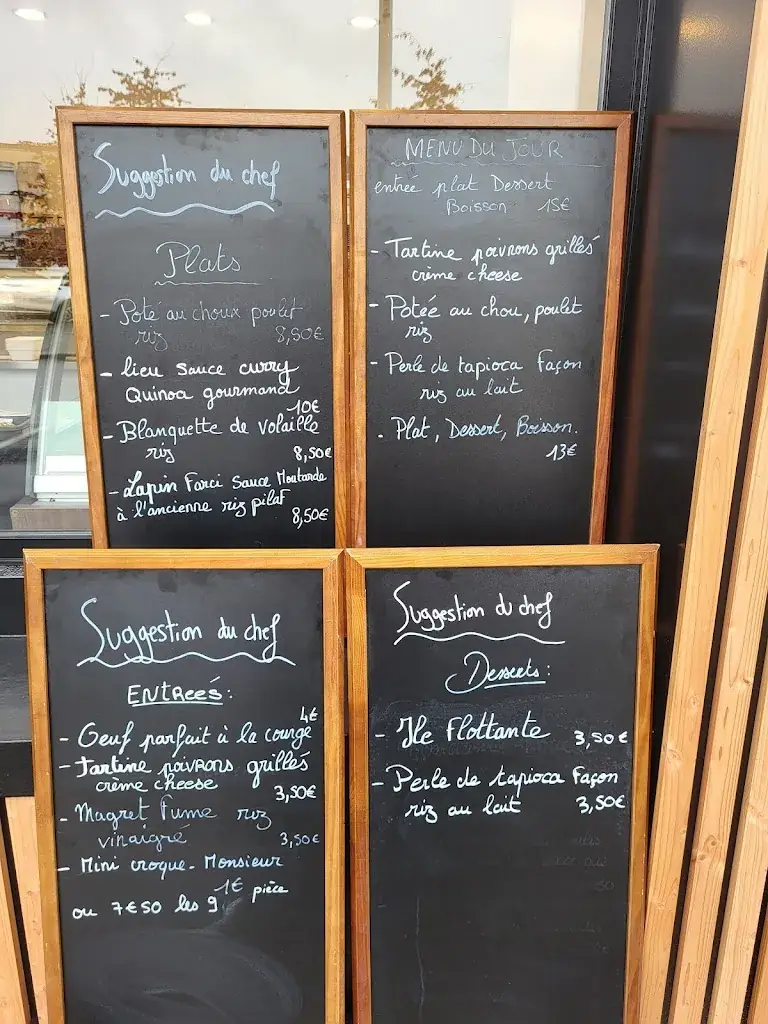 Suggestion du chef
Plats
- Poté au choux poulet
riz 8,50€
- lieu sauce curry
Quinoa gourmand
10€
- Blanquette de volaille
riz 8,50€
- Lapin Farci sauce Moutarde
à l'ancienne riz pilaf
8,50€
MENU DU JOUR
entrée plat Dessert
Boisson 15€
- Tartine poivrons grillés
crème cheese
- Potée au chou, poulet
riz
- Perle de tapioca façon
riz au lait
. Plat, Dessert, Boisson.
13€
Suggestion du chef
ENTREES:
4€
- Oeuf parfait à la courge
- Tartine poivrons grillés
crème cheese 3,50€
- Magret fumé riz
vinaigré 3,50€
- Mini croque-Monsieur
1€ pièce
ou 7€50 les 9
Suggestion du chef
Desserts:
- Ile Flottante 3,50€
- Perle de tapioca façon
riz au lait 3,50€